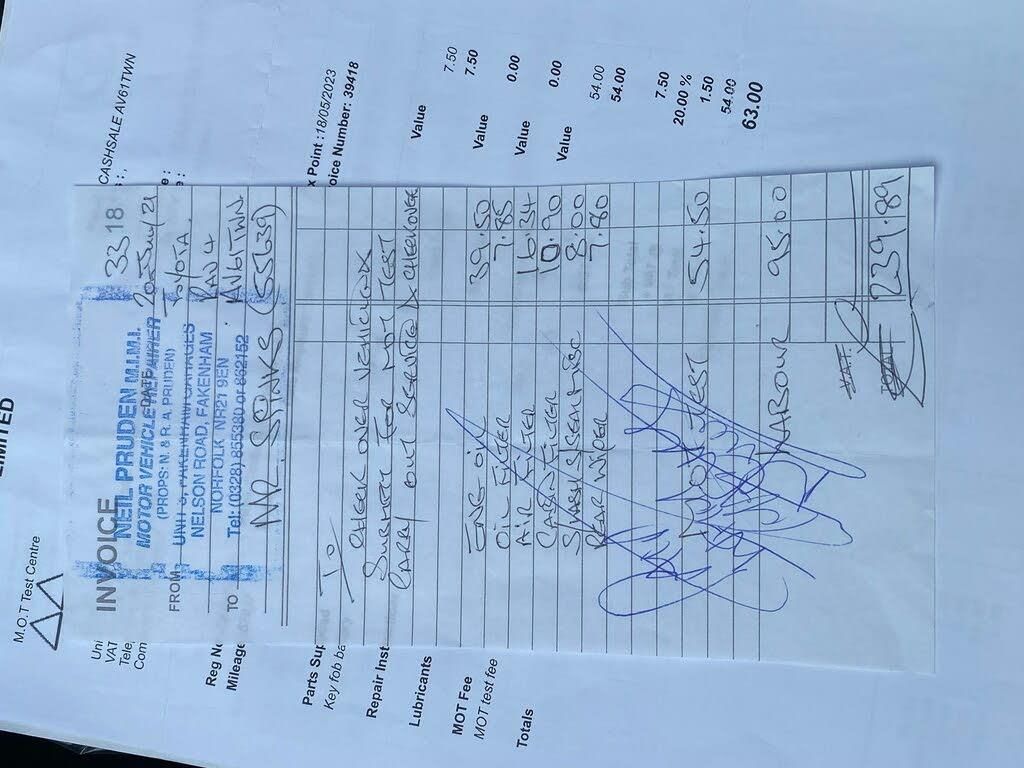 LIMITED
M.O.T Test Centre
Uni
VAT
Tele
Com
CASHSALE AV61TWN
Reg No
Mileage
x Point :18/05/2023
oice Number: 39418
Parts Sup
Key fob ba
Value
7.50
7.50
Repair Inst
Value
0.00
Lubricants
Value
0.00
MOT Fee
Value
MOT test fee
54.00
54.00
Totals
7.50
20.00 %
1.50
54.00
63.00
INVOICE
33 18
NEIL PRUDEN M.I.M.I.
MOTOR VEHICLE REPAIRER
(PROPS: N. & R. A. PRUDEN)
DATE
FROM
UNIT 3, FAKENHAM GARAGES
TOYOTA
NELSON ROAD, FAKENHAM
RAV 4
NORFOLK NR21 9EN
AV61TWN
TO
Tel: (0328) 855380 or 862152
MR. SPINKS (55639)
To
CHECK OVER VEHICLE &
SUBMIT FOR MOT TEST
CARRY OUT SERVICE & CHECKOVER
ENG OIL 39.50
OIL FILTER 7.85
AIR FILTER 16.34
CABIN FILTER 10.90
S/WASH S/SEAL MISC 8.00
REAR WIPER 7.80
MOT TEST 54.50
LABOUR 95.00
V.A.T.
TOTAL 239.89